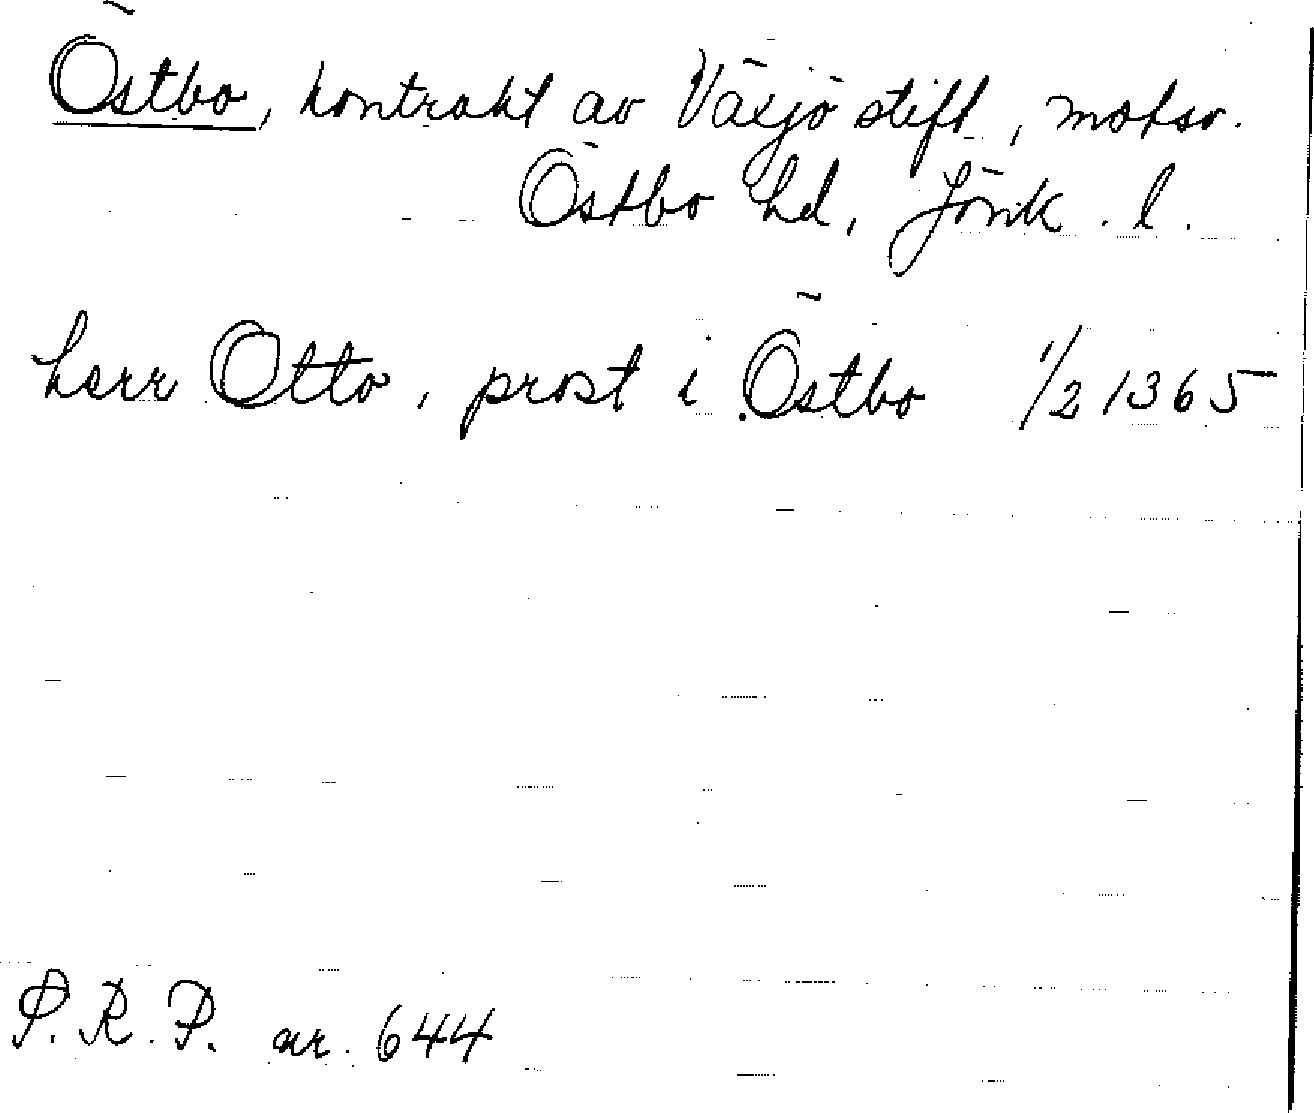 Östbo, kontrakt av Växjö stift, motsv.
Östbo hd, Jönk. l.
herr Otto, prost i Östbo 1/2 1365
P. R. P. nr. 644